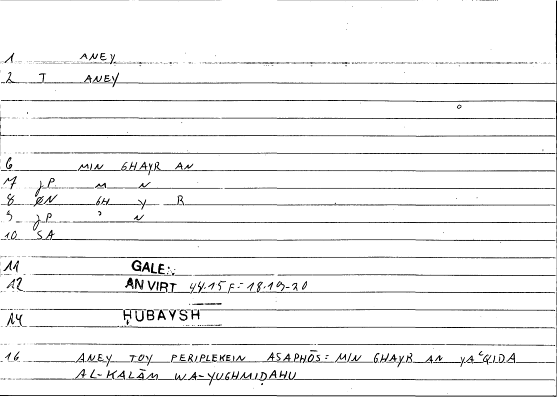 1 ANEY
2 T ANEY
6 MIN GHAYR AN
7 JP M N
8 ØN GH Y R
9 JP ' N
10 SA
11 GALEN
12 AN VIRT 44.15 F = 18.19-20
14 ḤUBAYSH
16 ANEY TOY PERIPLEKEIN ASAPHŌS = MIN GHAYR AN YAʿQIDA
AL-KALĀM WA-YUGHMIḌAHU